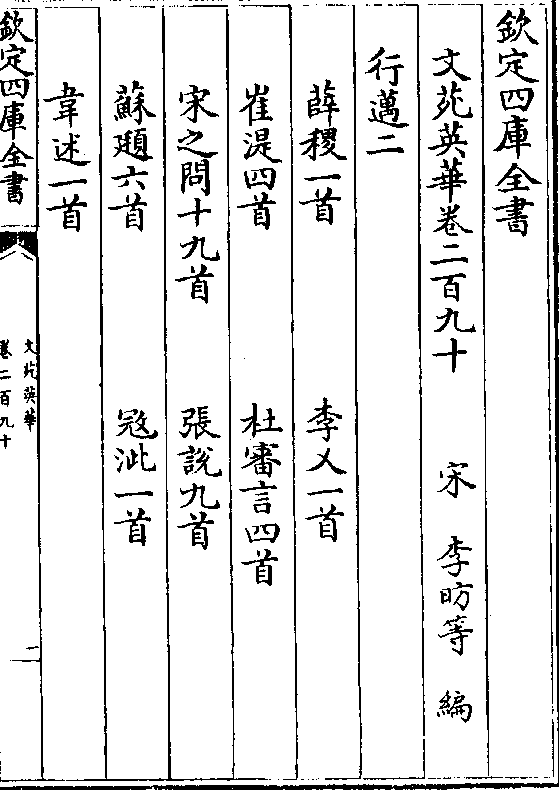 欽定四庫全書
文苑英華卷二百九十 宋 李昉等 編
行邁二
薛稷一首 李乂一首
崔湜四首 杜審言四首
宋之問十九首 張說九首
蘇頲六首 冦泚一首
韋述一首
欽定四庫全書
文苑英華
卷二百九十
一